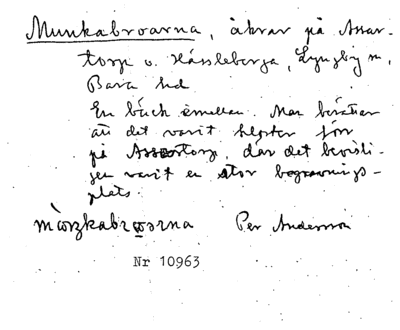 Munkabroarna, åkrar på Assar-
torp o. Hässleberga, Lyngby sn,
Bara hd
En bäck emellan. Man berättar
att det varit kloster förr
på Assartorp, där det bevisli-
gen varit en stor begravnings-
plats.
Per Andersson
Nr 10963